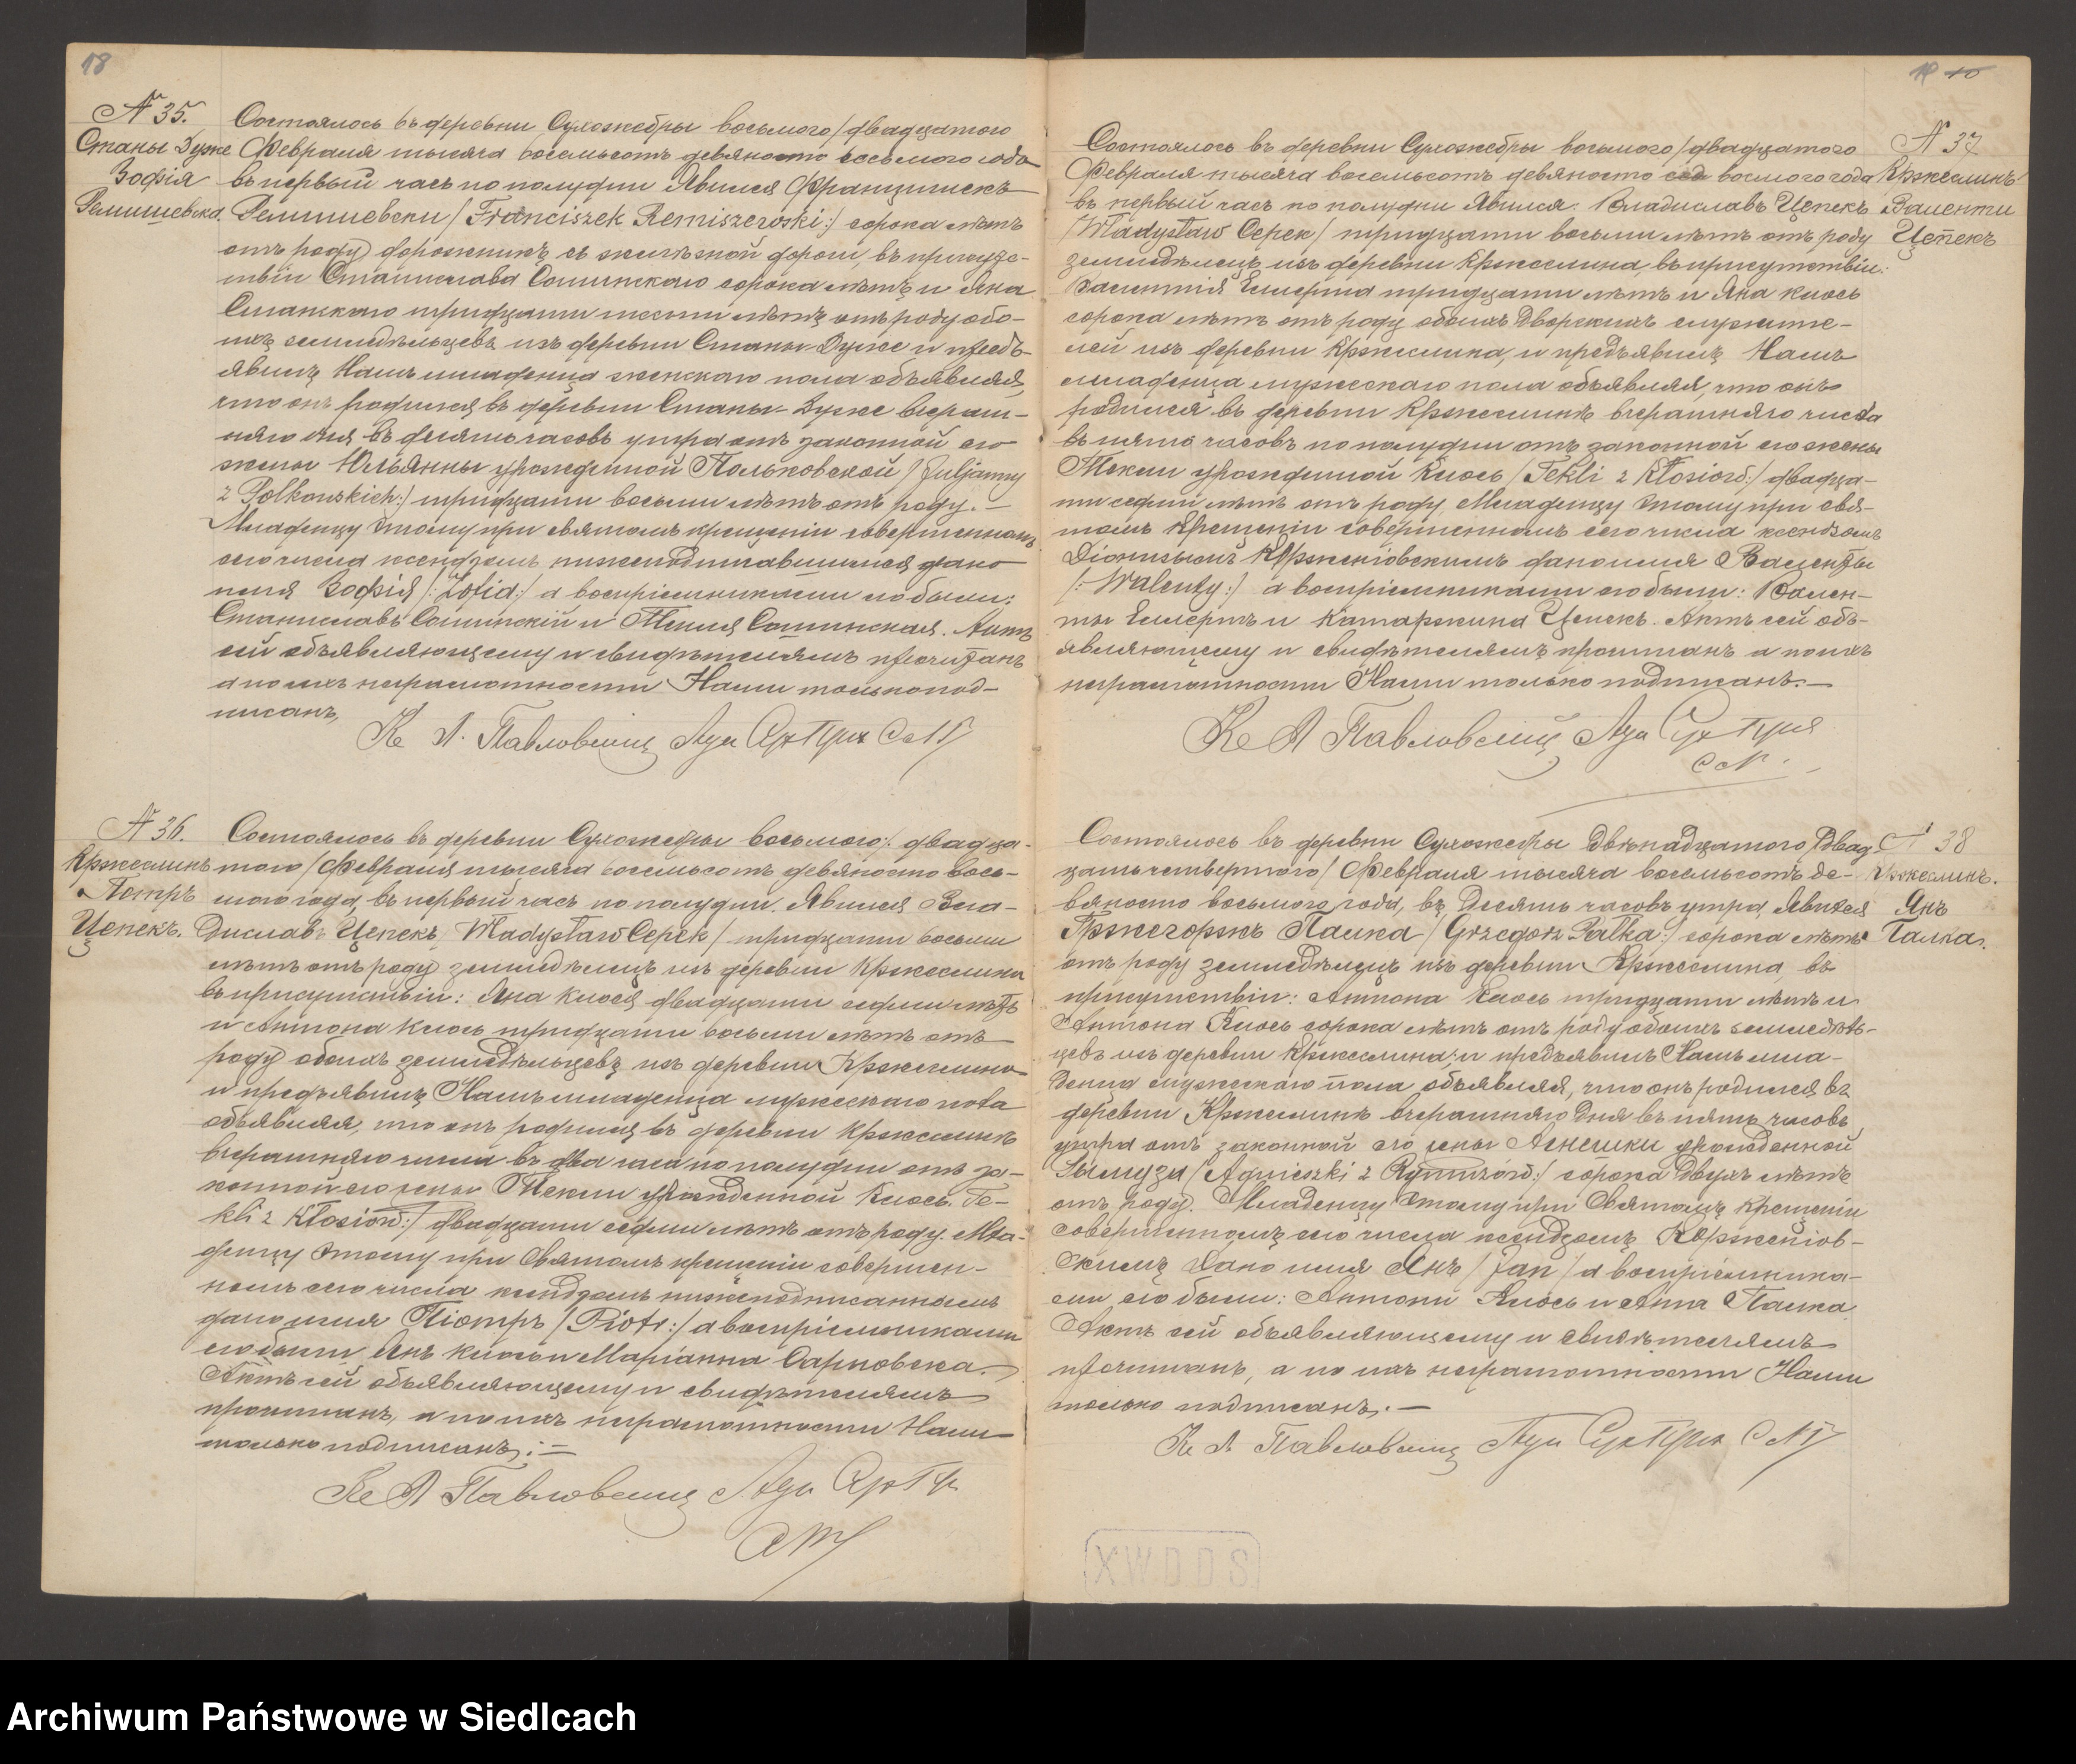 18
N 35.
Станы Дуже
Зофія
Ремишевска.
Состоялось въ деревни Сухожебры восьмого/двадцатого
Февраля тысяча восемьсотъ девяносто восьмого года
въ первый часъ по полудни. Явился Францишекъ
Ремишевски /Franciszek Remiszewski:/ сорока лѣтъ
отъ роду дорожникъ съ желѣзной дороги, въ присуд-
твіи Станислава Сошинскаго сорока лѣтъ и Яна
тридцати шести лѣтъ отъ роду обо-
ихъ земледѣльцевъ изъ деревни Станы-Дуже и предъ-
явилъ Намъ младенца женскаго пола объявляя,
что онъ родился въ деревни Станы-Дуже вчераш-
няго дня въ десять часовъ утра отъ законной его
жены Юльянны урожденной Польковской /Juljanny
z Polkowskich:/ тридцати восьми лѣтъ отъ роду. —
Младенцу этому при святомъ крещеніи совершенномъ
сего числа ксендзомъ нижеподписавшимся дано
имя Зофія /:Zofia:/ а воспріемниками его были:
Станиславъ Сошинскій и Текля Сошинская. Актъ
сей объявляющему и свидѣтелямъ прочитанъ
а по ихъ неграмотности Нами только под-
писанъ,
Кс А. Павловский С М
N 36.
Кржеслинъ
Піотръ
Цепекъ.
Состоялось въ деревни Сухожебры восьмого/: двадца-
того/ Февраля тысяча восемьсотъ девяносто вось-
мого года, въ первый часъ по полудни. Явился Вла-
диславъ Цепекъ, Władysław Cepek/ тридцати восьми
лѣтъ отъ роду земледѣлецъ изъ деревни Кржеслина
въ присутствіи: Яна Клося двадцати седми лѣтъ
и Антона Клось тридцати восьми лѣтъ отъ
роду обоихъ земледѣльцевъ изъ деревни Кржеслина
и предъявилъ Намъ младенца мужескаго пола
объявляя, что онъ родился въ деревни Кржеслинъ
вчерашняго числа въ два часа по полудни отъ за-
конной его жены Текли урожденной Клось. Te-
kli z Kłosiow:/ двадцати седми лѣтъ отъ роду. Мла-
денцу этому при Святомъ крещеніи совершен-
номъ сего числа ксендзомъ нижеподписаннымъ
дано имя Піотръ /Piotr:/ а воспріемниками
его были Янъ Клось и Маріанна Сарновска.
Актъ сей объявляющему и свидѣтелямъ
прочитанъ, а по ихъ неграмотности Нами
только подписанъ: —
Кс А Павловский
10
N 37
Кржеслинъ
Валенти
Цепекъ
Состоялось въ деревни Сухожебры восьмого/двадцатого
Февраля тысяча восемьсотъ девяносто восмого года
въ первый часъ по полудни Явился: Владиславъ Цепекъ
/Władysław Cepek/ тридцати восьми лѣтъ отъ роду
земледѣлецъ изъ деревни Кржеслина, въ присутствіи:
Валентія тридцати лѣтъ и Яна Клось
сорока лѣтъ отъ роду обоихъ Дворскихъ служите-
лей изъ деревни Кржеслина, и предъявилъ Намъ
младенца мужескаго пола объявляя, что онъ
родился въ деревни Кржеслинъ вчерашняго числа
въ пять часовъ по полудни отъ законной его жены
Текли урожденной Клось /Tekli z Kłosiow:/ двадца-
ти седми лѣтъ отъ роду. Младенцу этому при свя-
томъ крещеніи совершенномъ сего числа ксендзомъ
Діонизымъ Крженіовскимъ дано имя Валенты
/:Walenty:/ а воспріемниками его были: Вален-
ты и Катаржина Цепекъ. Актъ сей объ-
являющему и свидѣтелямъ прочитанъ а по ихъ
неграмотности Нами только подписанъ. —
Кс А Павловский
N 38
Кржеслинъ.
Янъ
Палка.
Состоялось въ деревни Сухожебры двѣнадцатого/двад-
цать четвертого/ Февраля тысяча восемьсотъ де-
вяносто восьмого года, въ десять часовъ утра, Явился
Гржегоржъ Палка /Grzegorz Pałka:/ сорока лѣтъ
отъ роду земледѣлецъ изъ деревни Кржеслина, въ
присутствіи: Антона Клось тридцати лѣтъ и
Антона Клось сорока лѣтъ отъ роду обоихъ земледѣль-
цевъ изъ деревни Кржеслина; и предъявилъ Намъ мла-
денца мужескаго пола объявляя, что онъ родился въ
деревни Кржеслинъ вчерашняго дня въ пять часовъ
утра отъ законной его жены Агнешки урожденной
/Agnieszki z :/ сорока двухъ лѣтъ
отъ роду. Младенцу этому при Святомъ крещеніи
совершенномъ сего числа ксендзомъ Крженіов-
скимъ дано имя Янъ /Jan/ а воспріемника-
ми его были: Антони Клось и Анна Палка
Актъ сей объявляющему и свидѣтелямъ
прочитанъ, а по ихъ неграмотности Нами
только подписанъ. —
Кс А. Павловский
XWDDS
Archiwum Państwowe w Siedlcach